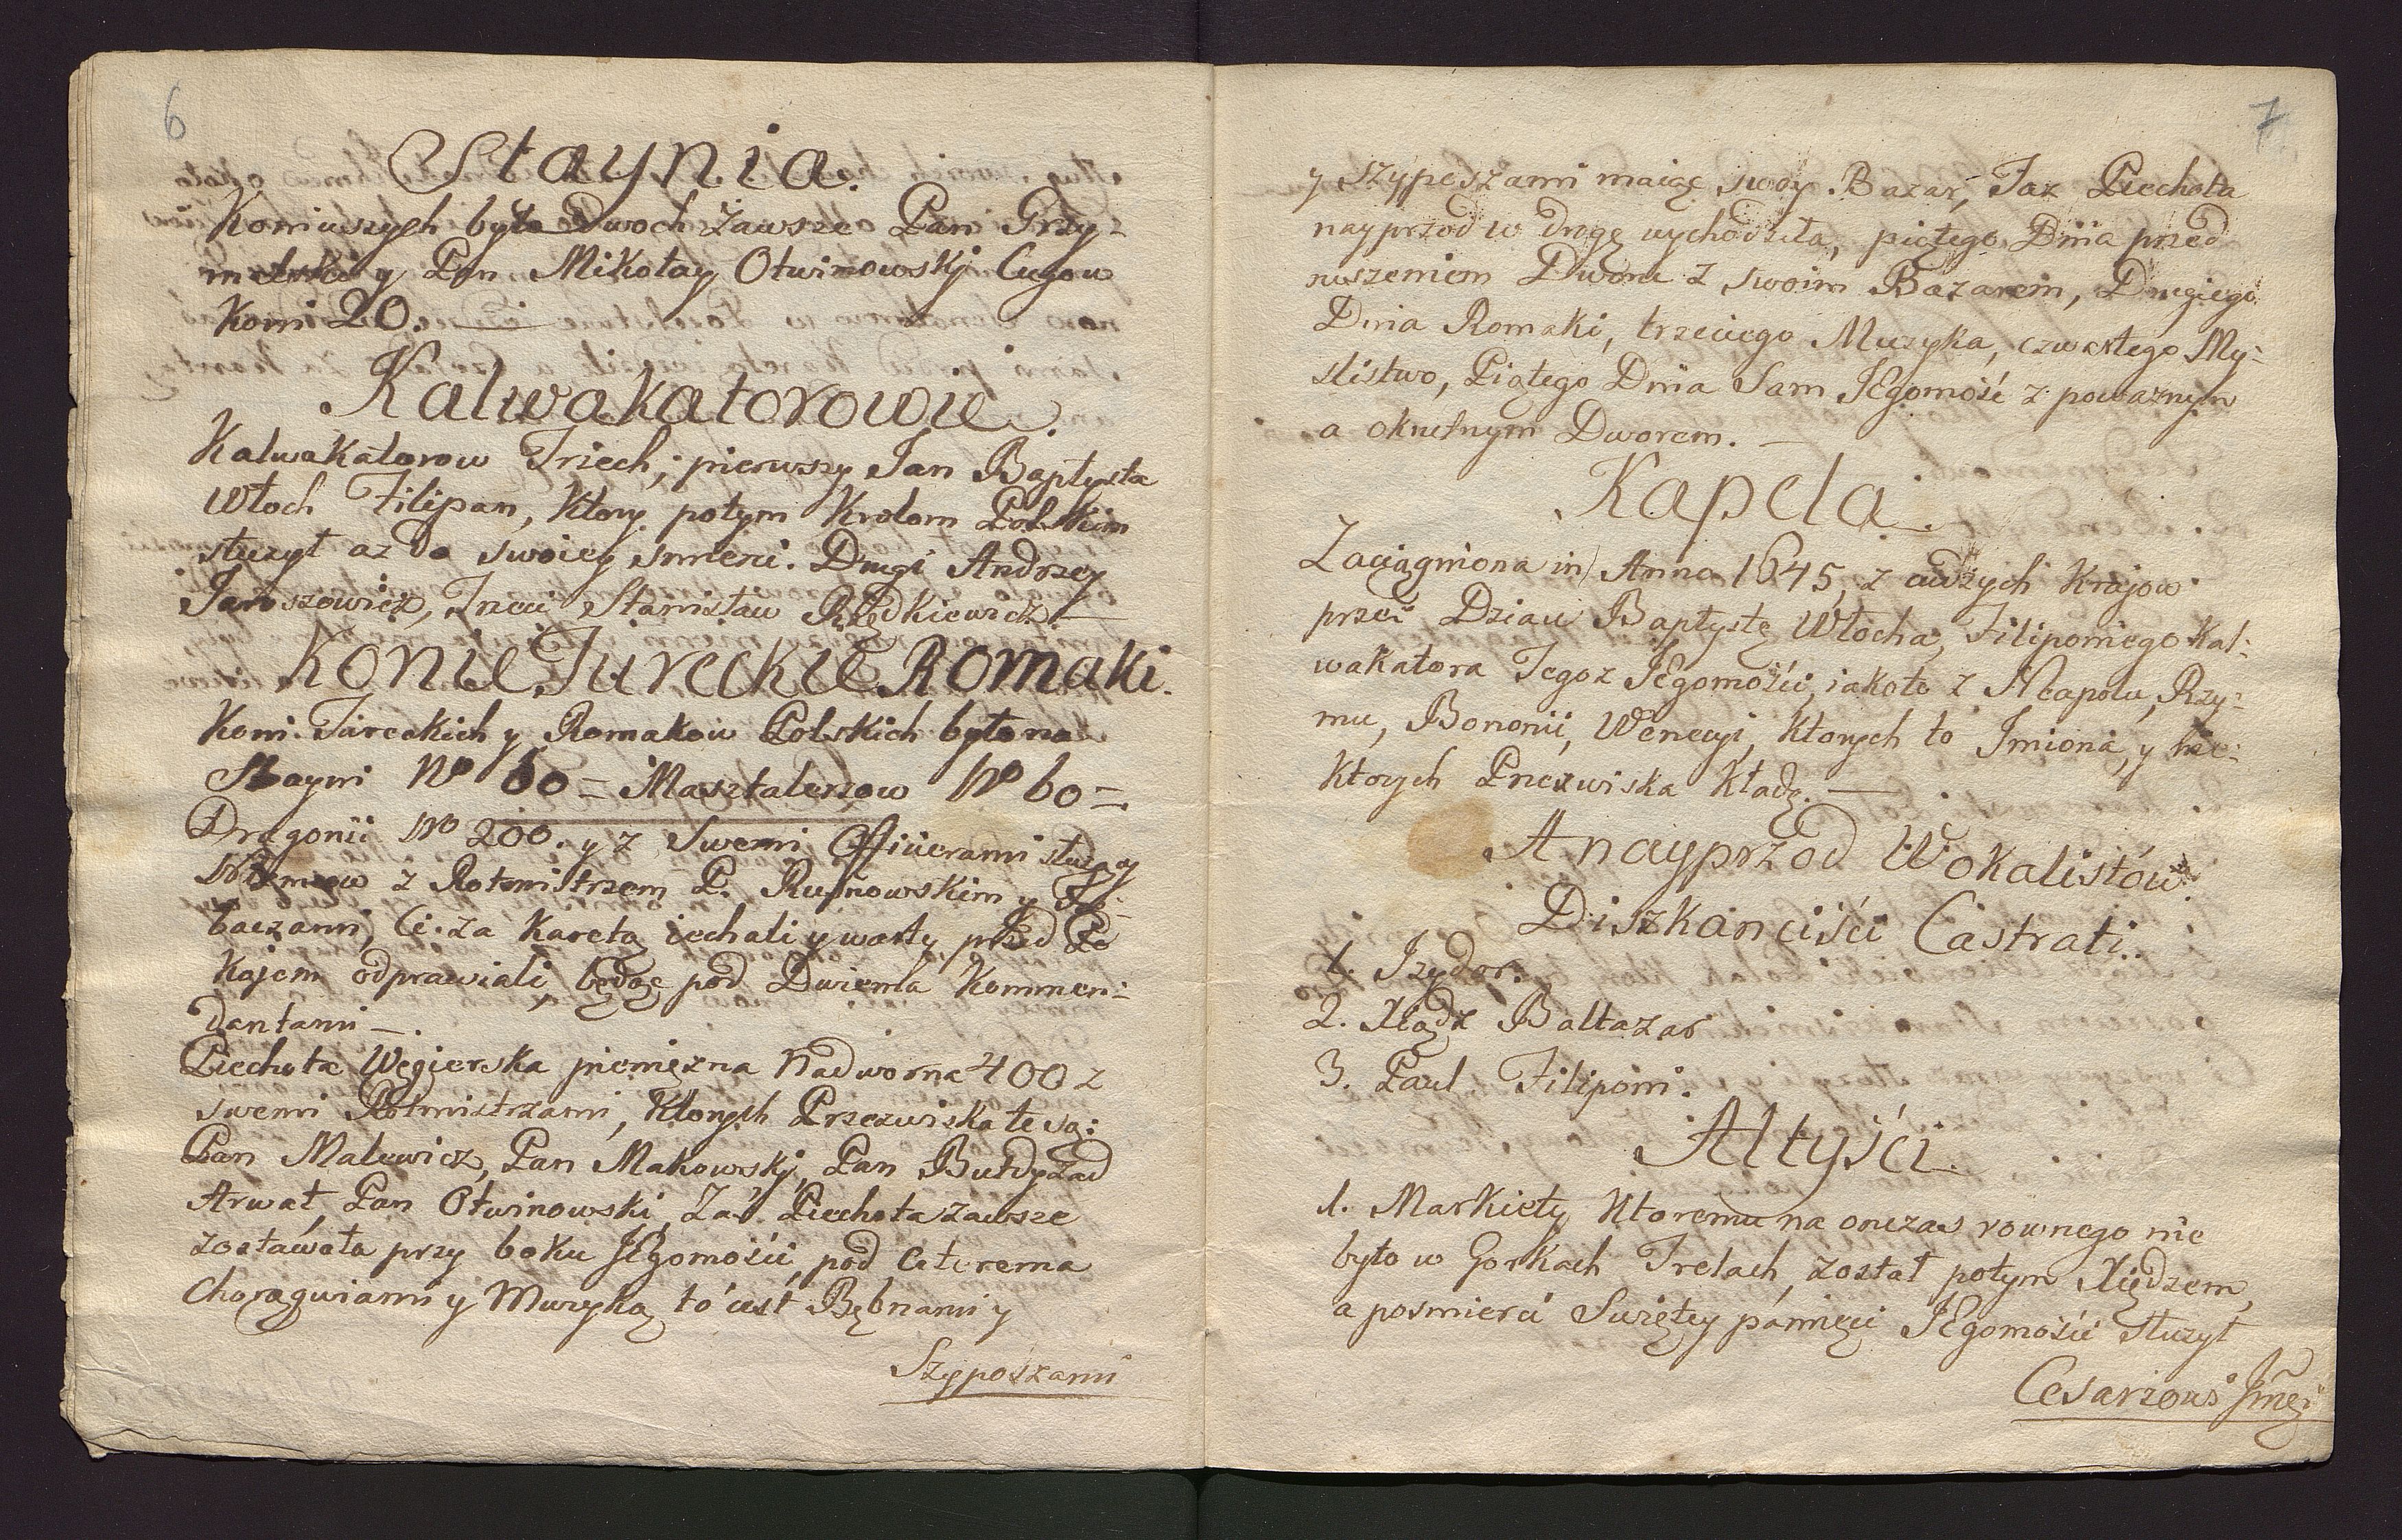 6
Staynia.
Koniuszych było Dwoch zawsze Pan Grzy-
y Pan Mikołay Otwinowski Cugow
Koni 20. —
Kalwakatorowie.
Kalwakatorow Trzech; pierwszy Jan Baptysta
Włoch Filipan, Ktory potym Krolom Polskim
służył az do swoiey smierci. Drugi Andrzey
Jaroszowicz, Trzeci Stanisław Rzedkiewicz. —
Konie Tureckie Romaki.
Koni Tureckich y Romakow Polskich było na
Stayni No 60 = Masztalerzow No 60 =.
Dragonii No 200. y z Swemi Officierami służący
Niemcow z Rotmistrzem P. Rusnowskim y
baczami, Ci za Karetą iechali y warty przed Po
Kojem odprawiali, będąc pod Dwiema Kommen-
dantami —.
Piechota Węgierska pieniężna Nadworna 400 z
swemi Rotmistrzami, Ktorych Przezwiska te są:
Pan Malewicz, Pan Makowski, Pan Bułdyzad
Arwat Pan Otwinowski, Zaś Piechota zawsze
zostawała przy boku JEgomości, pod czterema
Chorągwiami y Muzyką to iest Bębnami y
Szyposzami
7
y Szyposzami maiąc swoy Bazar, Taz Piechota
nayprzod w drogę wychodziła, piątego Dnia przed
ruszeniem Dworu z swoim Bazarem, Drugiego
Dnia Romaki, trzeciego Muzyka, czwartego My-
slistwo, Piątego Dnia Sam JEgomość z poważnym
a okrutnym Dworem. —
Kapela.
Zaciągniona in Anno 1645, z cudzych Krajow
przez Dziau Baptystę Włocha, Filiponiego Kal-
wakatora Tegoz JEgomości, iakoto z Neapolu, Rzy-
mu, Bononii, Wenecyi, Ktorych to Imiona, y nie-
ktorych Przezwiska Kładę. —
A nayprzod Wokalistów
Diszkanciści Castrati.
1. Izydor.
2. Xiądz Baltazar
3. Paul Filiponi.
Altyści.
1. Markiety Ktoremu na onczas rownego nie
było w Gorkach Trelach, został potym Xiędzem,
a posmierci Swiętey pamięci JEgomości służył
Cesarzowi Jmći